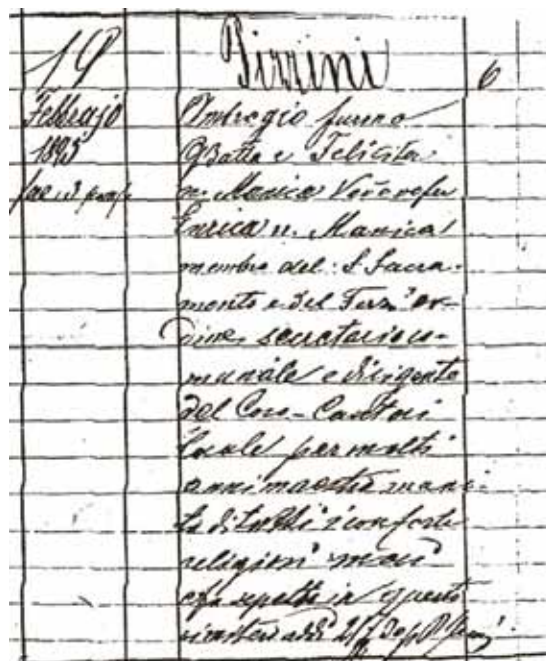 19
Febbrajo
1895
Pizzini
6
Ambrogio furono
GBatta e Felicita
n. Manica Vedovo fu
Enrica n. Manica
membro del S. Sacra-
mento e del Terz' or-
dine, secretario co-
munale e dirigente
del Coro-Cantori
locale per molti
anni
di tutti i conforti
religiosi morì
sepolto in questo
cimitero addì